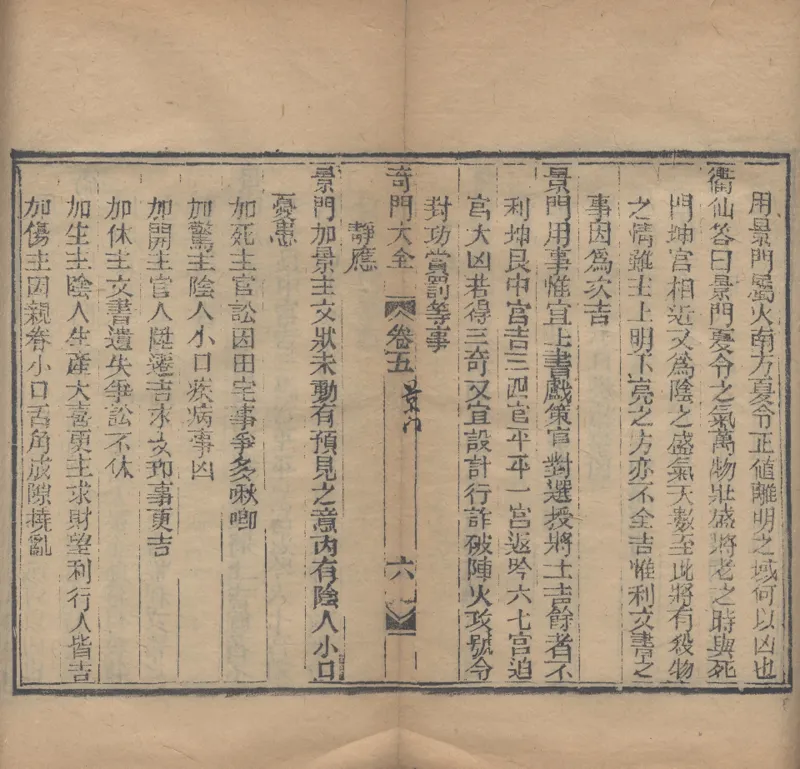 用景門屬火南方夏令正値離明之域何以凶也
衢仙答曰景門夏令之氣萬物壯盛將老之時與死
門坤宮相近又爲陰之盛氣天數至此將有殺物
之情雖主上明下亮之方亦不全吉惟利文書之
事因爲次吉
景門用事惟宜上書戲策官對選授將士吉餘者不
利坤艮中宮吉三四官平平一宮返吟六七宮迫
宮大凶若得三奇又宜設計行詐破陣火攻號令
對功賞罰等事
奇門大全 卷五 景门 六
靜應
景門加景主文狀未動有預見之意內有陰人小口
憂患
加死主官訟因田宅事爭多啾唧
加驚主陰人小口疾病事凶
加開主官人陞遷吉求文印事更吉
加休主文書遺失爭訟不休
加生主陰人生產大喜更主求財望利行人皆吉
加傷主因親眷小口舌角成隙撓亂